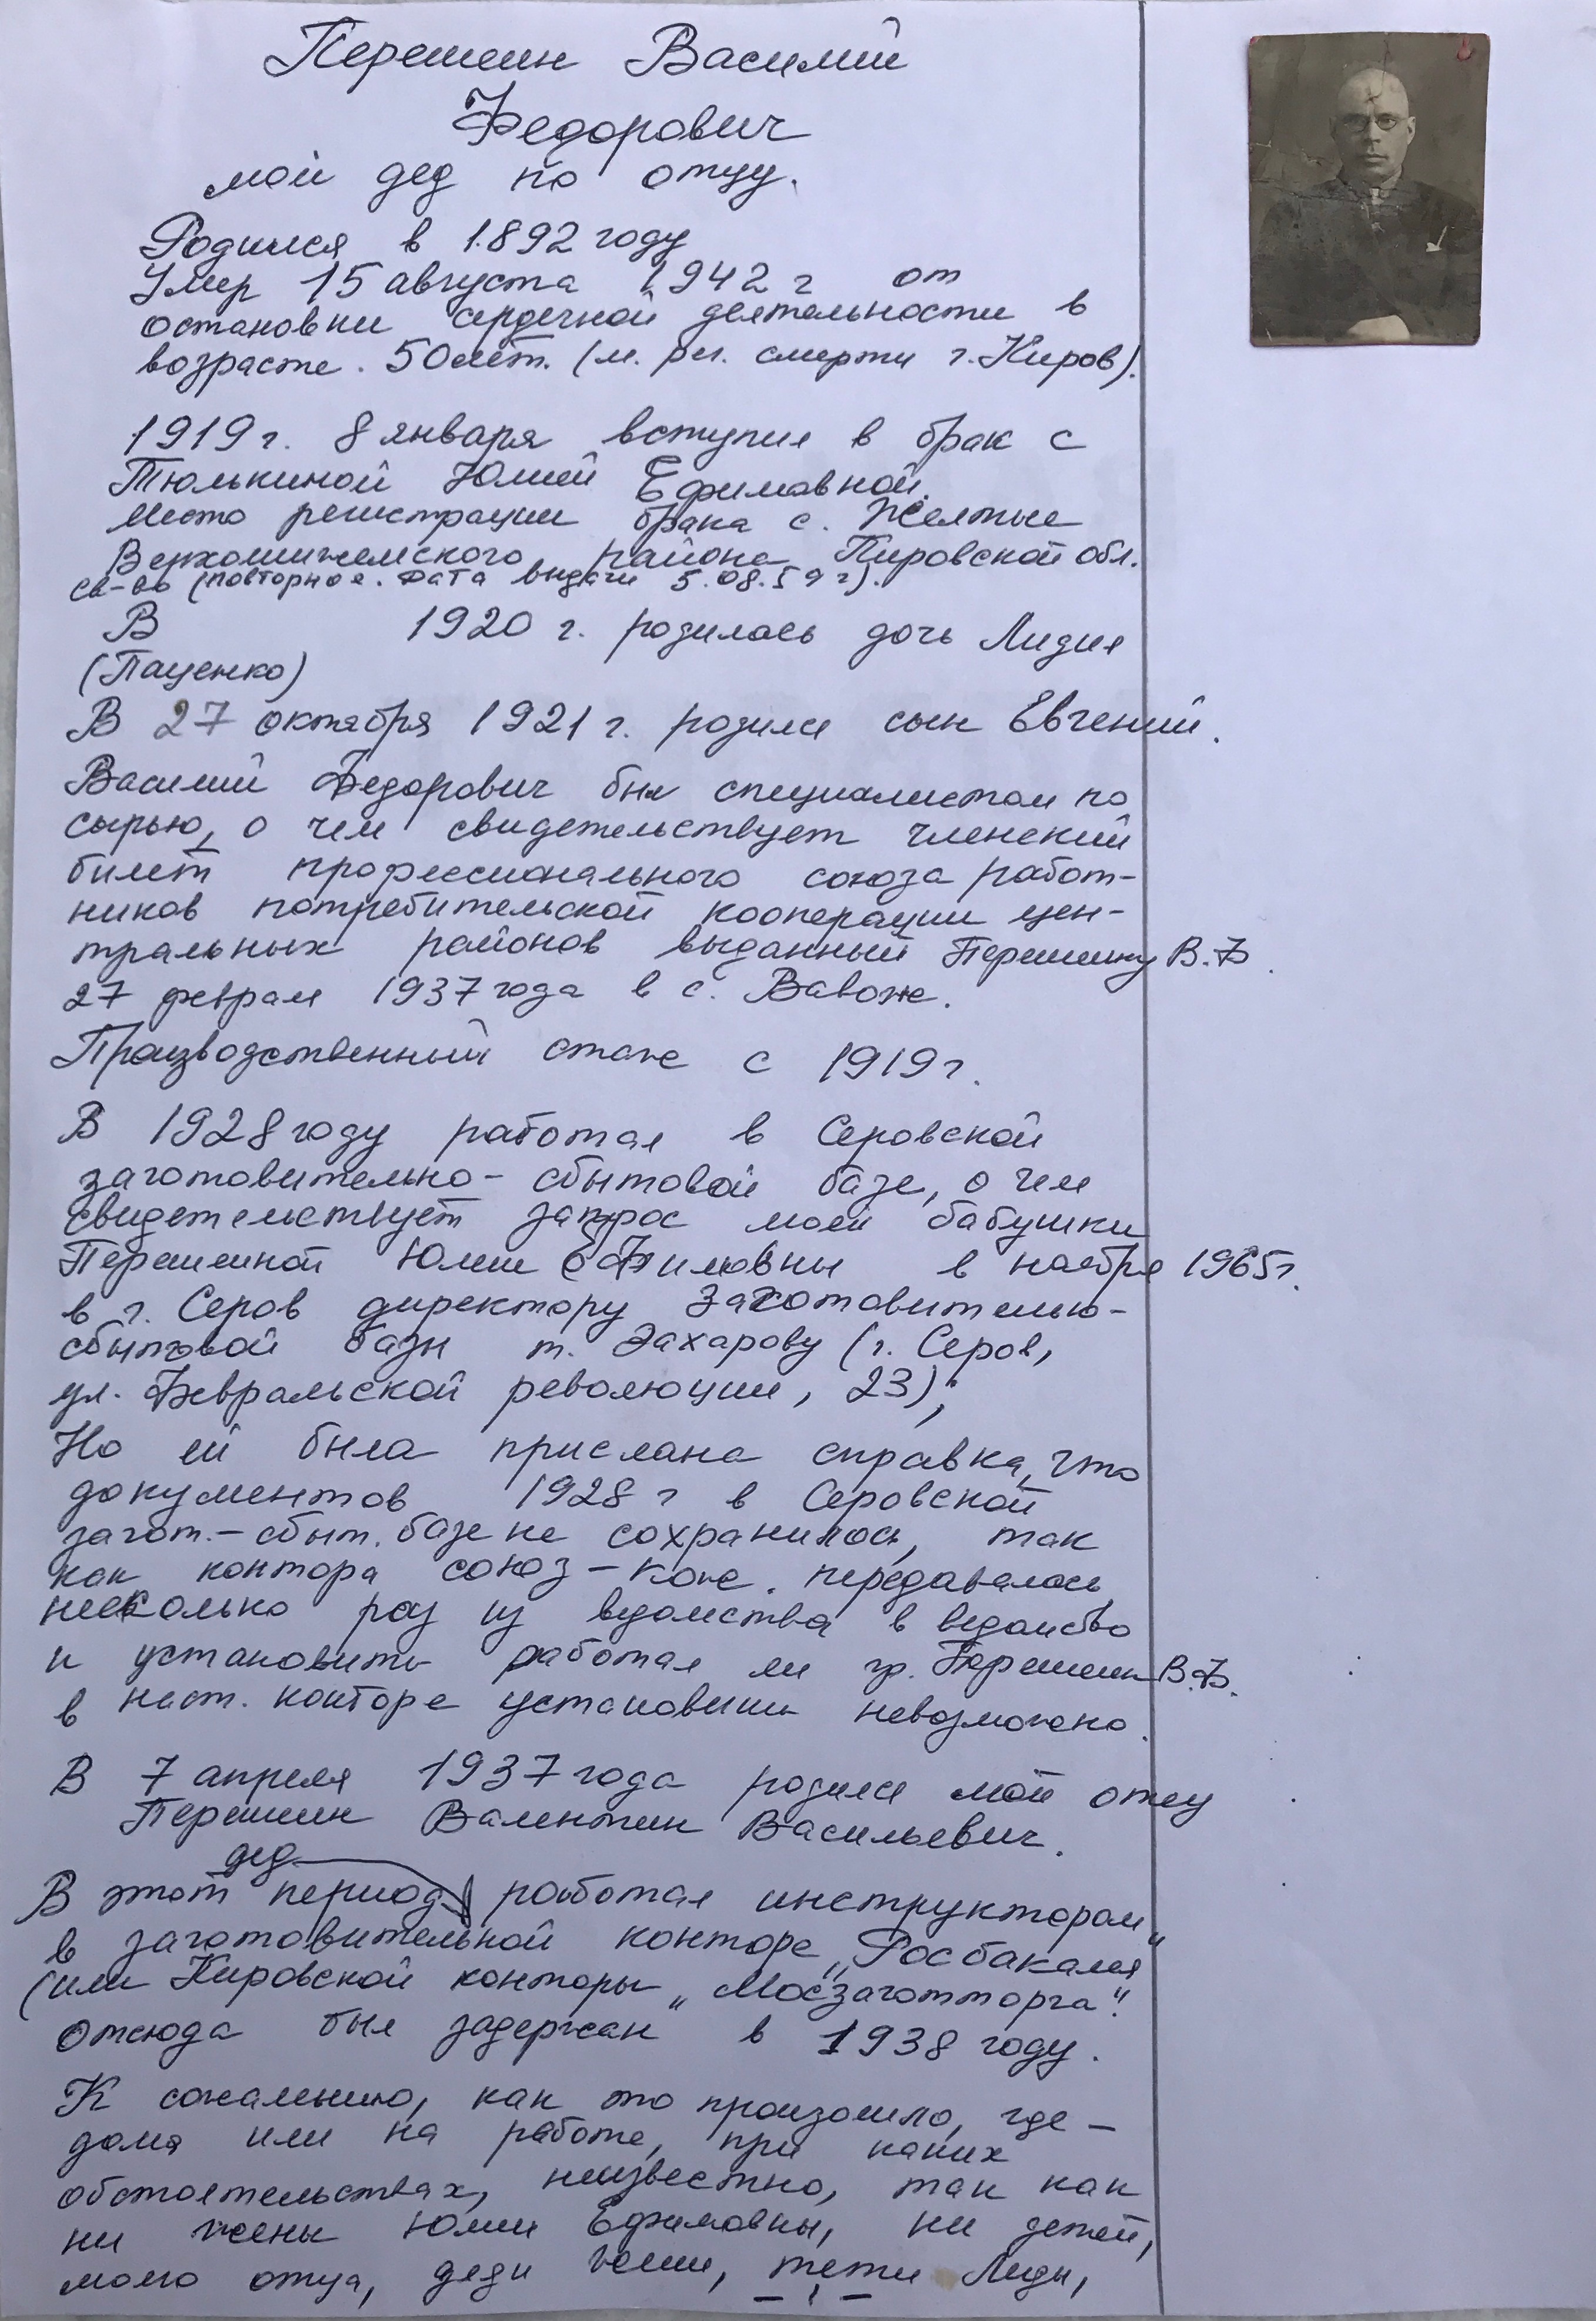 Перешеин Василий
Федорович
мой дед по отцу.
Родился в 1892 году
Умер 15 августа 1942 г от
остановки сердечной деятельности в
возрасте. 50 лет. (м. рег. смерти г. Киров).
1919 г. 8 января вступил в брак с
Тюлькиной Юлией Ефимовной.
Место регистрации брака с. Желтые
Верхошижемского района Кировской обл.
св-во (повторное. Дата выдачи 5.08.59 г).
В 1920 г. родилась дочь Лидия
(Паценко)
В 27 октября 1921 г. родился сын Евгений.
Василий Федорович был специалистом по
сырью, о чем свидетельствует членский
билет профессионального союза работ-
ников потребительской кооперации цен-
тральных районов выданный Перешеину В.Ф.
27 февраля 1937 года в с. Вавож.
Производственный стаж с 1919 г.
В 1928 году работал в Серовской
заготовительно-сбытовой базе, о чем
свидетельствует запрос моей бабушки
Перешеиной Юлии Ефимовны в ноябре 1965 г.
в г. Серов директору Заготовительно-
сбытовой базы т. Захарову (г. Серов,
ул. Февральской революции, 23);
Но ей была прислана справка, что
документов 1928 г в Серовской
загот.-сбыт. базе не сохранилось, так
как контора союз-кож. передавалась
несколько раз из ведомства в ведомство
и установить работал ли гр. Перешеин В.Ф.
в наст. конторе установить невозможно.
В 7 апреля 1937 года родился мой отец
Перешеин Валентин Васильевич.
дед
В этот период работал инструктором
в заготовительной конторе „Росбакалея"
(или Кировской конторы „Мосзаготторга".
Отсюда был задержан в 1938 году.
К сожалению, как это произошло, где -
дома или на работе, при каких
обстоятельствах, неизвестно, так как
ни жены Юлии Ефимовны, ни детей,
моего отца, дяди Жени, тети Лиды,